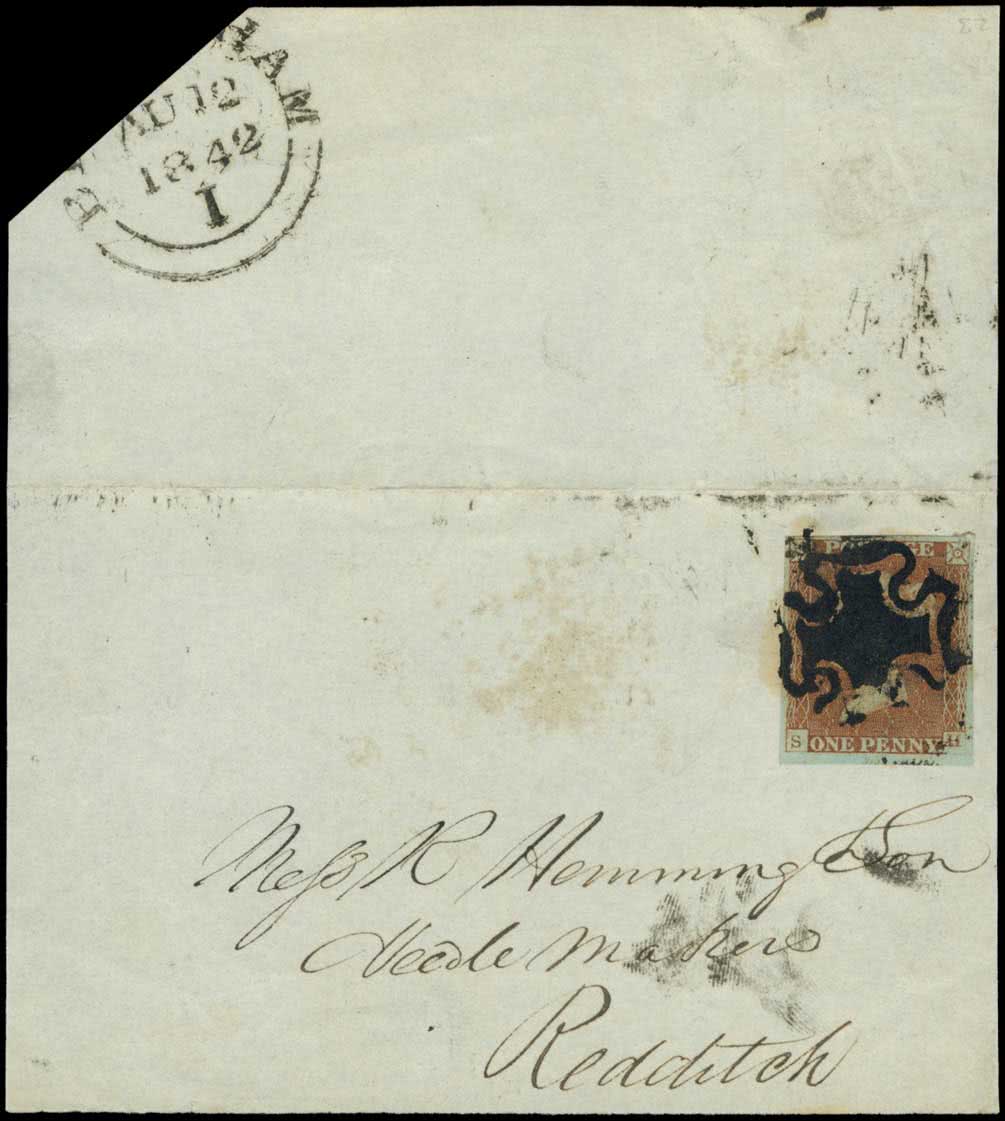 AU 12
1842
I
POSTAGE
S ONE PENNY H
Mess R Hemming & Son
Needle Makers
Redditch